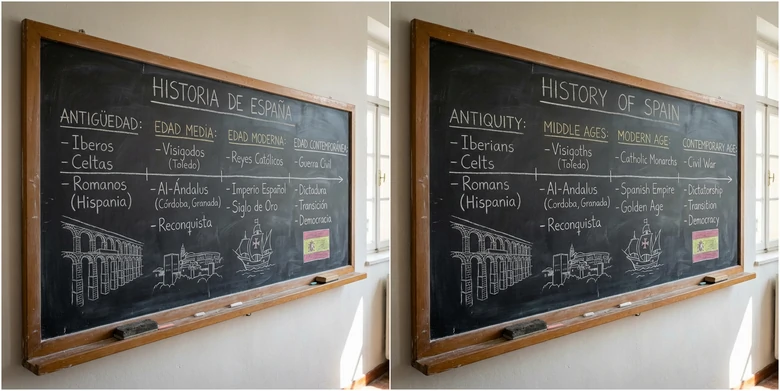 HISTORIA DE ESPAÑA
ANTIGÜEDAD:
- Iberos
- Celtas
- Romanos
(Hispania)
EDAD MEDIA:
- Visigodos
(Toledo)
- Al-Ándalus
(Córdoba, Granada)
- Reconquista
EDAD MODERNA:
- Reyes Católicos
- Imperio Español
- Siglo de Oro
EDAD CONTEMPORÁNEA:
- Guerra Civil
- Dictadura
- Transición
- Democracia
HISTORY OF SPAIN
ANTIQUITY:
- Iberians
- Celts
- Romans
(Hispania)
MIDDLE AGES:
- Visigoths
(Toledo)
- Al-Andalus
(Cordoba, Granada)
- Reconquista
MODERN AGE:
- Catholic Monarchs
- Spanish Empire
- Golden Age
CONTEMPORARY AGE:
- Civil War
- Dictatorship
- Transition
- Democracy